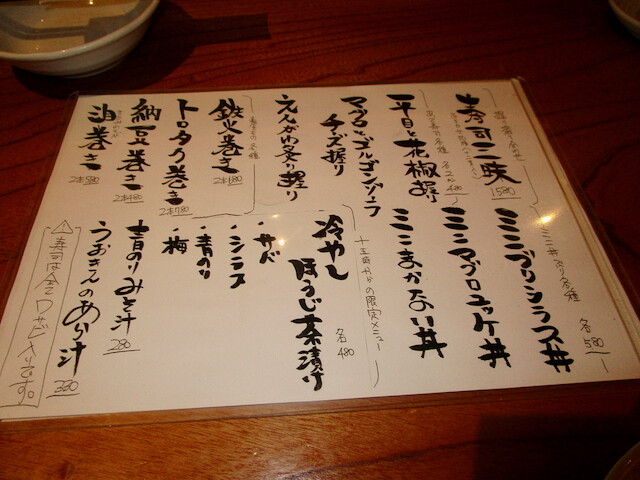 寿司三昧
1580
平目と花椒握り
各2コ 480
マグロとゴルゴンゾーラ
チーズ握り
えんがわ炙り握り
鉄火巻き
2本480
トロタク巻き
2本780
納豆巻き
2本480
巻き
2本580
ミニ丼 各種
各580
ミニブリシラス丼
ミニマグロユッケ丼
ミニまかない丼
限定メニュー
冷やし
ほうじ茶漬け
各480
・サバ
・シラス
・青のり
・梅
青のりみそ汁
280
うおきんのあら汁
380
⚠寿司は全てワサビ入りです。